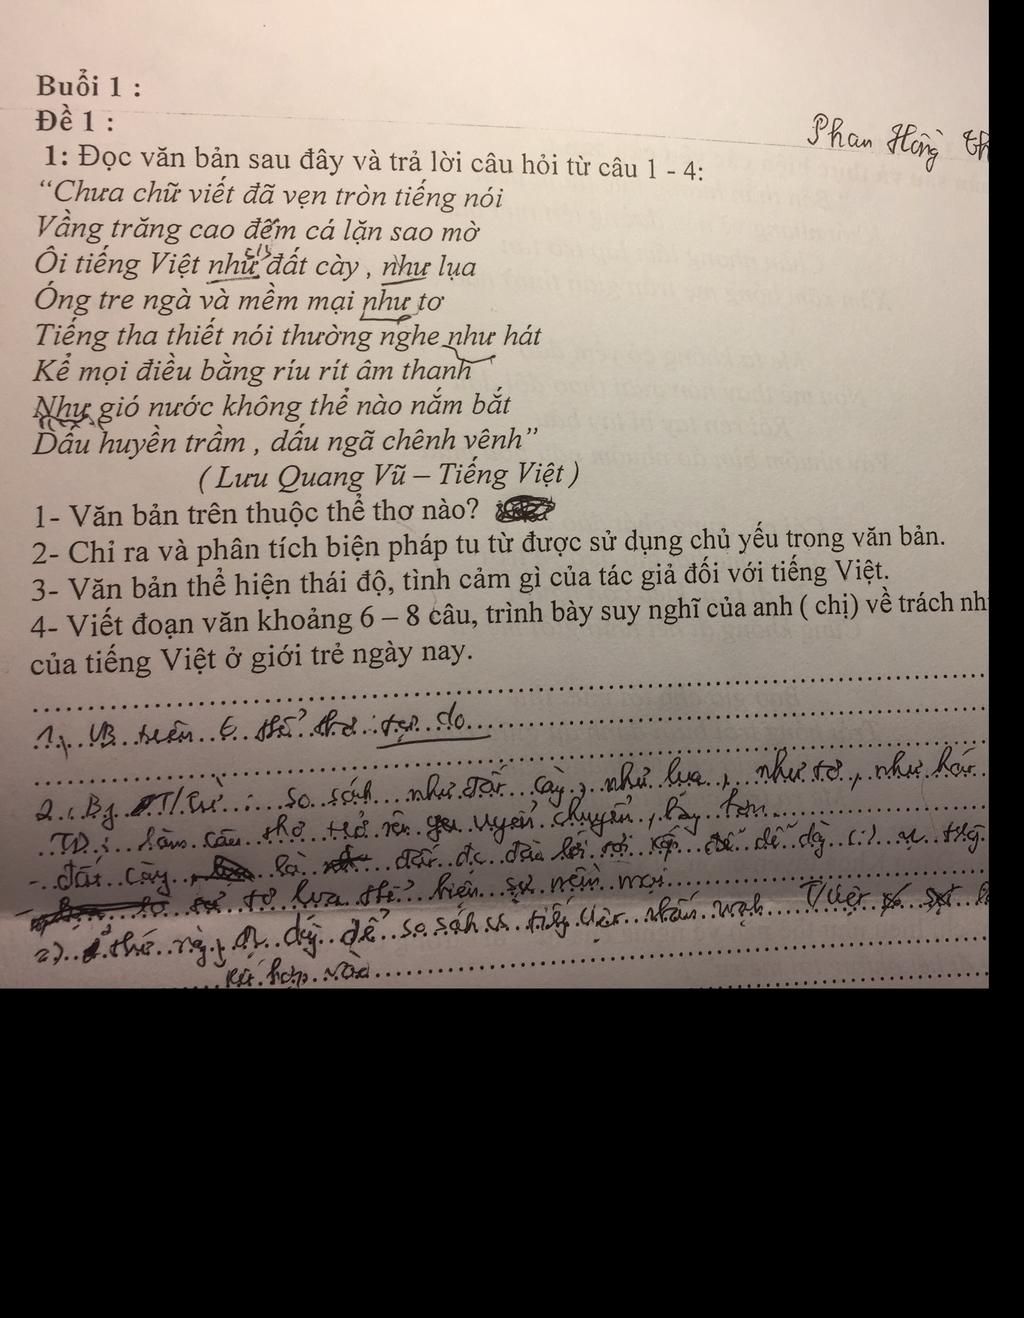 Buổi 1 :
Đề 1 :
Phan Hồng
1: Đọc văn bản sau đây và trả lời câu hỏi từ câu 1 - 4:
“Chưa chữ viết đã vẹn tròn tiếng nói
Vầng trăng cao đêm cá lặn sao mờ
Ôi tiếng Việt như đất cày , như lụa
Óng tre ngà và mềm mại như tơ
Tiếng tha thiết nói thường nghe như hát
Kể mọi điều bằng ríu rít âm thanh
Như gió nước không thể nào nắm bắt
Dấu huyền trầm , dấu ngã chênh vênh”
( Lưu Quang Vũ – Tiếng Việt )
1- Văn bản trên thuộc thể thơ nào?
2- Chỉ ra và phân tích biện pháp tu từ được sử dụng chủ yếu trong văn bản.
3- Văn bản thể hiện thái độ, tình cảm gì của tác giả đối với tiếng Việt.
4- Viết đoạn văn khoảng 6 – 8 câu, trình bày suy nghĩ của anh ( chị) về trách
của tiếng Việt ở giới trẻ ngày nay.
1, VB trên thể thơ : tự do
2. so sánh như đất cày, như lụa, như tơ, như hát
TD : làm câu thơ trở nên uyển chuyển
- đất cày là dễ dàng
tơ lụa thể hiện sự mềm mại
để so sánh tiếng Việt nhấn mạnh